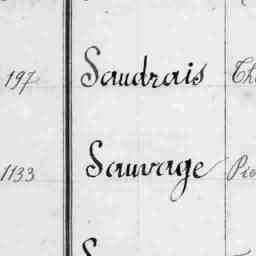 197 Saudrais
1133 Sauvage